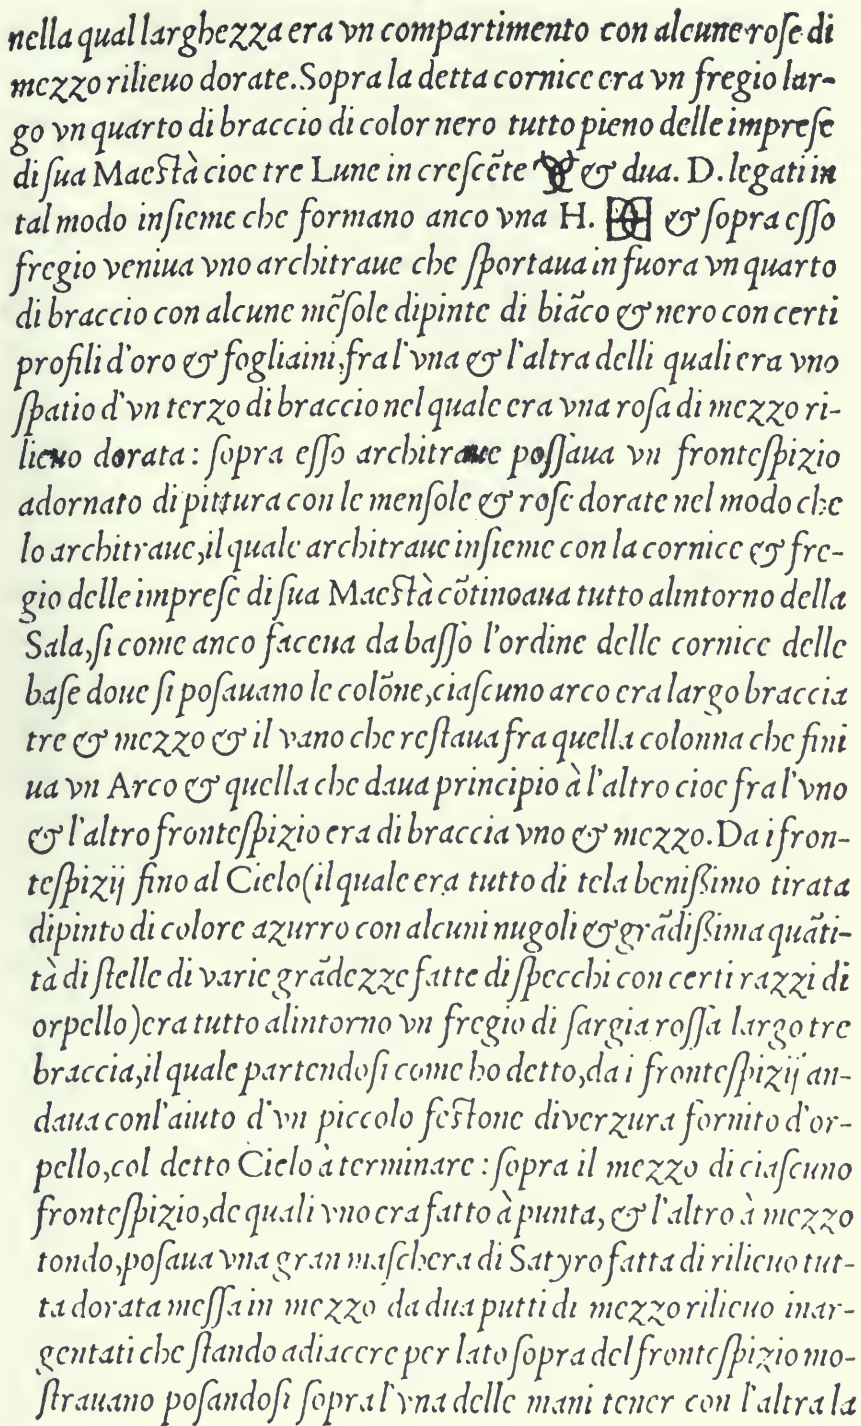 nella qual larghezza era vn compartimento con alcune roſe di
mezzo rilieuo dorate. Sopra la detta cornice era vn fregio lar-
go vn quarto di braccio di color nero tutto pieno delle impreſe
di ſua Maeſtà cioe tre Lune in creſcẽte & dua. D. legati in
tal modo inſieme che formano anco vna H. & ſopra eſſo
fregio veniua vno architraue che ſportaua in fuora vn quarto
di braccio con alcune mẽſole dipinte di biãco & nero con certi
profili d'oro & fogliaini, fra l'vna & l'altra delli quali era vno
ſpatio d'vn terzo di braccio nel quale era vna roſa di mezzo ri-
lieuo dorata: ſopra eſſo architraue poſſaua vn fronteſpizio
adornato di pittura con le menſole & roſe dorate nel modo che
lo architraue, il quale architraue inſieme con la cornice & fre-
gio delle impreſe di ſua Maeſtà cõtinoaua tutto alintorno della
Sala, ſi come anco faceua da baſſo l'ordine delle cornice delle
baſe doue ſi poſauano le colõne, ciaſcuno arco era largo braccia
tre & mezzo & il vano che reſtaua fra quella colonna che fini
ua vn Arco & quella che daua principio à l'altro cioe fra l'vno
& l'altro fronteſpizio era di braccia vno & mezzo. Da i fron-
teſpizij fino al Cielo (il quale era tutto di tela beniſſimo tirata
dipinto di colore azurro con alcuni nugoli & grãdiſſima quãti-
tà di ſtelle di varie grãdezze fatte di ſpecchi con certi razzi di
orpello) era tutto alintorno vn fregio di ſargia roſſa largo tre
braccia, il quale partendoſi come ho detto, da i fronteſpizij an-
daua conl'aiuto d'vn piccolo feſtone diverzura fornito d'or-
pello, col detto Cielo à terminare: ſopra il mezzo di ciaſcuno
fronteſpizio, de quali vno era fatto à punta, & l'altro à mezzo
tondo, poſaua vna gran maſchera di Satyro fatta di rilieuo tut-
ta dorata meſſa in mezzo da dua putti di mezzo rilieuo inar-
gentati che ſtando adiacere per lato ſopra del fronteſpizio mo-
ſtrauano poſandoſi ſopra l'vna delle mani tener con l'altra la